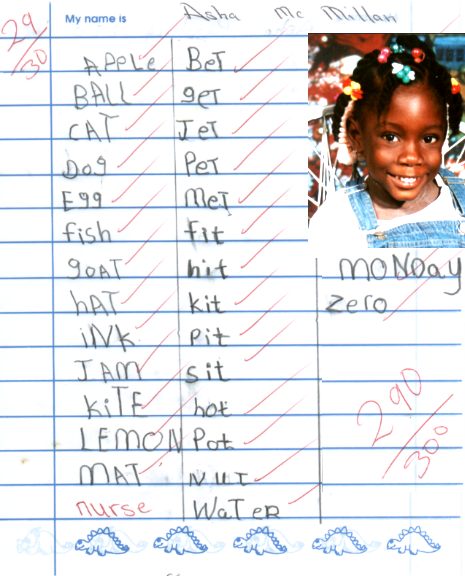 29/30
My name is Asha Mc Millan
APPLe BeT
BALL geT
CAT JeT
Dog PeT
Egg MeT
fish fit
goAT hit
hAT kit
iNk Pit
JAM sit
KiTE hot
LEMON Pot
MAT NUT
nurse WaTeR
moNDay
zero
290/300